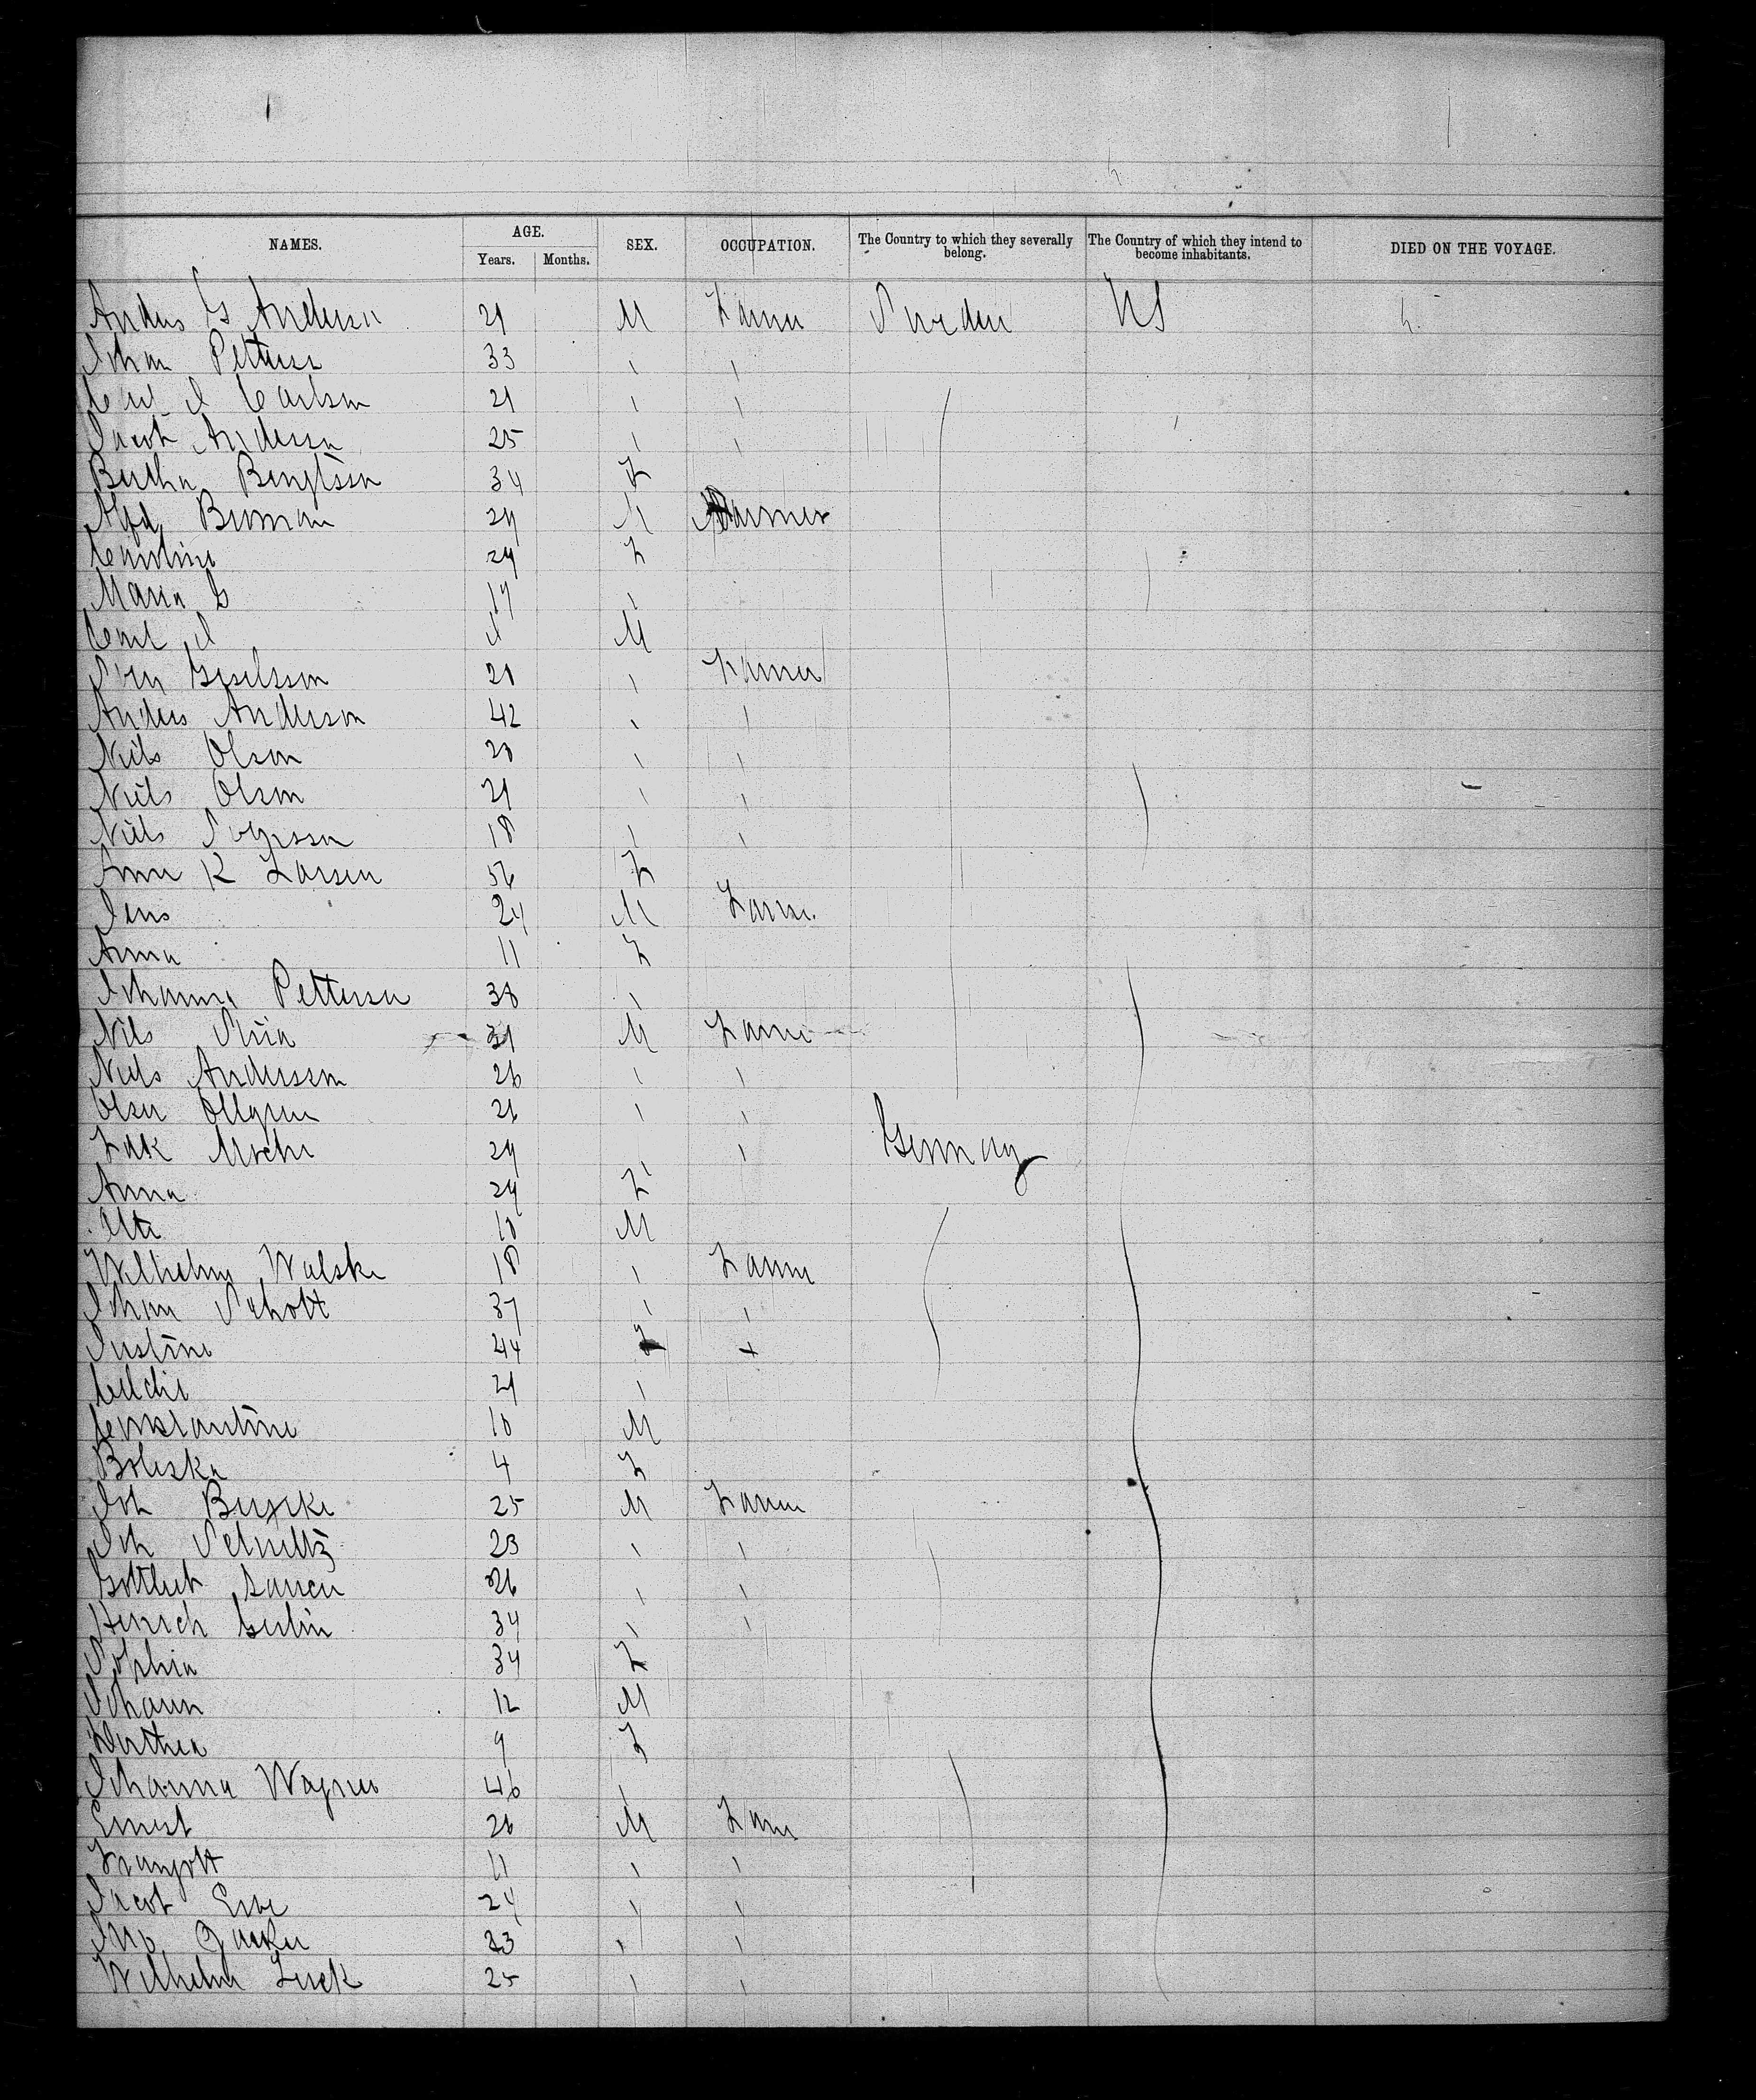 NAMES. AGE. SEX. OCCUPATION. The Country to which they severally belong. The Country of which they intend to become inhabitants. DIED ON THE VOYAGE.
Years. Months.
Anders G Anderson 21 M Farmer Sweden US
Johan Petterson 33 " "
Carl J Carlson 21 " "
Jacob Anderson 25 " "
Bertha Bengtsson 34 F
Alfd Burman 29 M Farmer
Caroline 29 F
Maria G 17 "
Carl J M
Sven 21 " Farmer
Anders Anderson 42 " "
Niels Olson 20 " "
Niels Olson 21 " "
Niels 18 " "
Anne K Larsen 56 F
Jens 24 M Farmer
Anna 11 F
Johanna Petterson 38 "
Nils M Farmer
Niels Andersson 26 " "
Olsen 26 " "
29 " Germany
Anna 29 F
10 M
Wilhelm Walske 18 " Farmer
Johan Schott 37 " "
Justine 44 F
21 "
Constantine 10 M
Boleska 4 F
Joh 25 M Farmer
Joh Schultz 23 " "
Gottlieb 26 " "
Henrich Gerlin 34 " "
Sophia 34 F
Johann 12 M
Dorthea 9 F
Johanna Wagner 46 "
Ernest 26 M Farm
Traugott 11 " "
Jacob 24 " "
33 " "
Wilhelm 25 " "